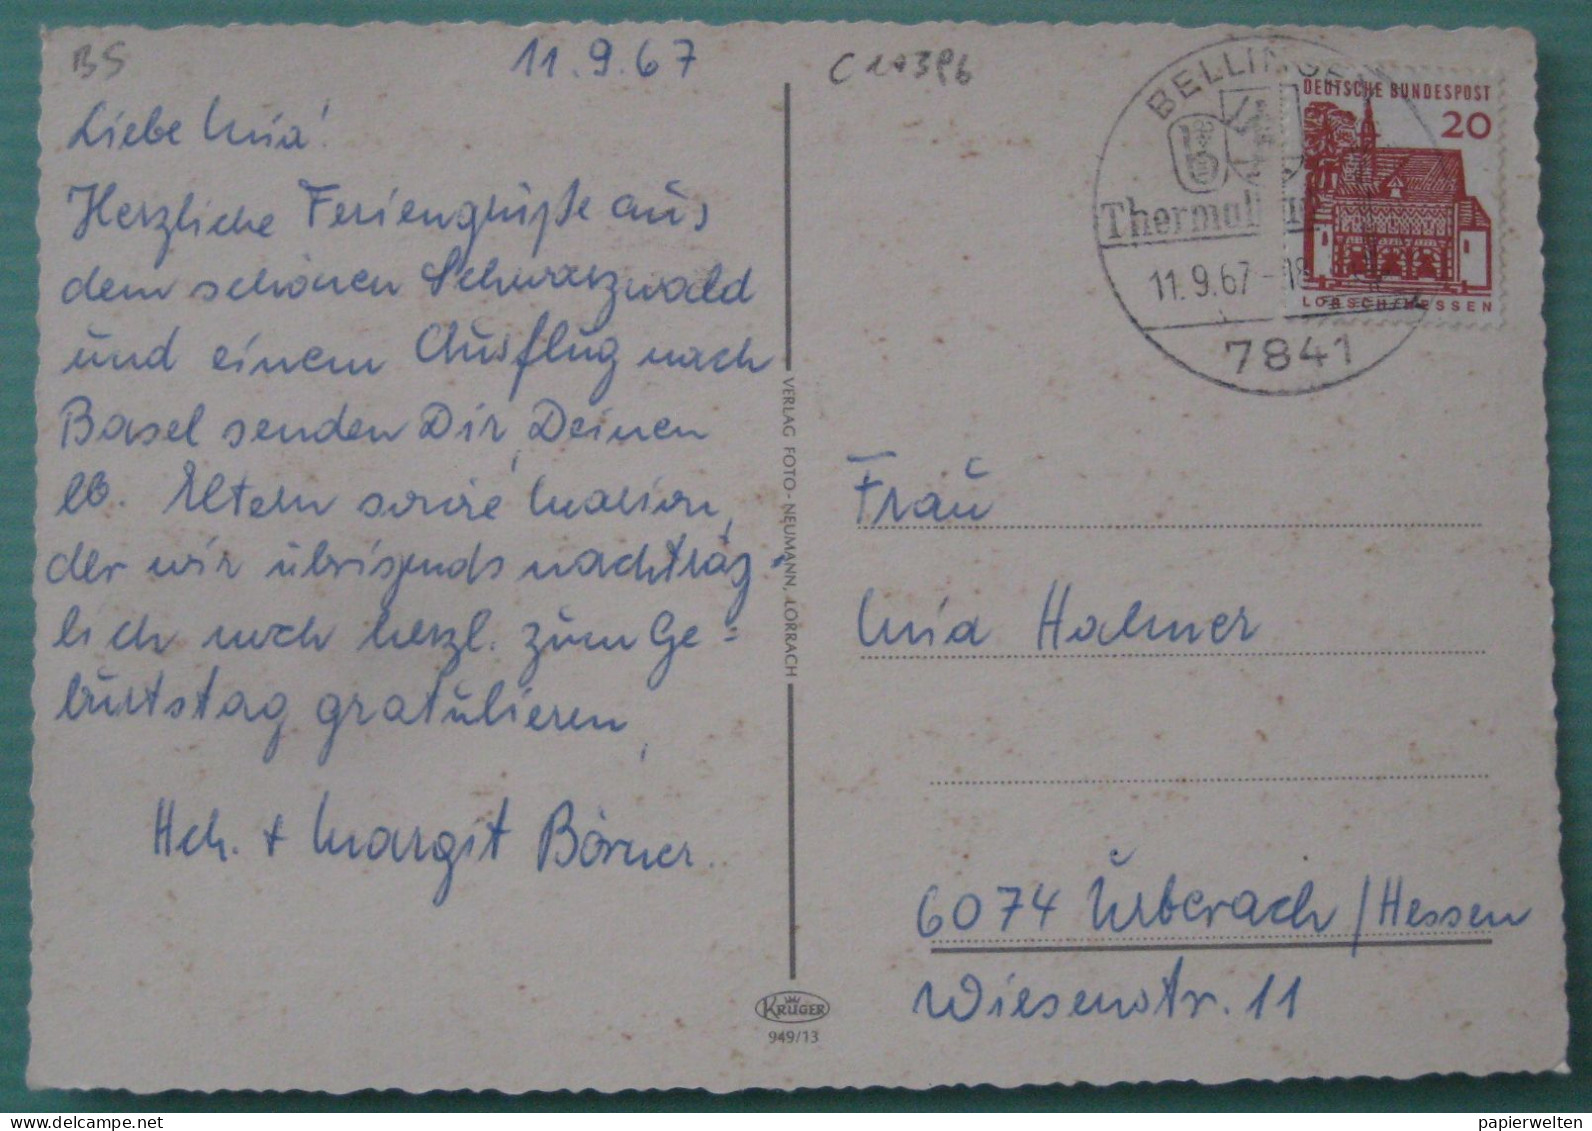 BS
11.9.67
Liebe Mia!
Herzliche Feriengrüße aus
dem schönen Schwarzwald
und einem Ausflug nach
Basel senden Dir, Deinen
lb. Eltern sowie Marion,
der wir übrigends nachträg-
lich noch herzl. zum Ge-
burtstag gratulieren,
Hch. + Margit Börner.
VERLAG FOTO-NEUMANN, LÖRRACH
KRÜGER
949/13
BELLINGEN
Thermal
11.9.67-18
7841
DEUTSCHE BUNDESPOST
20
LORSCH/HESSEN
Frau
Mia Halmer
6074 Urberach/Hessen
Wiesenstr. 11
delcampe.net
papierwelten